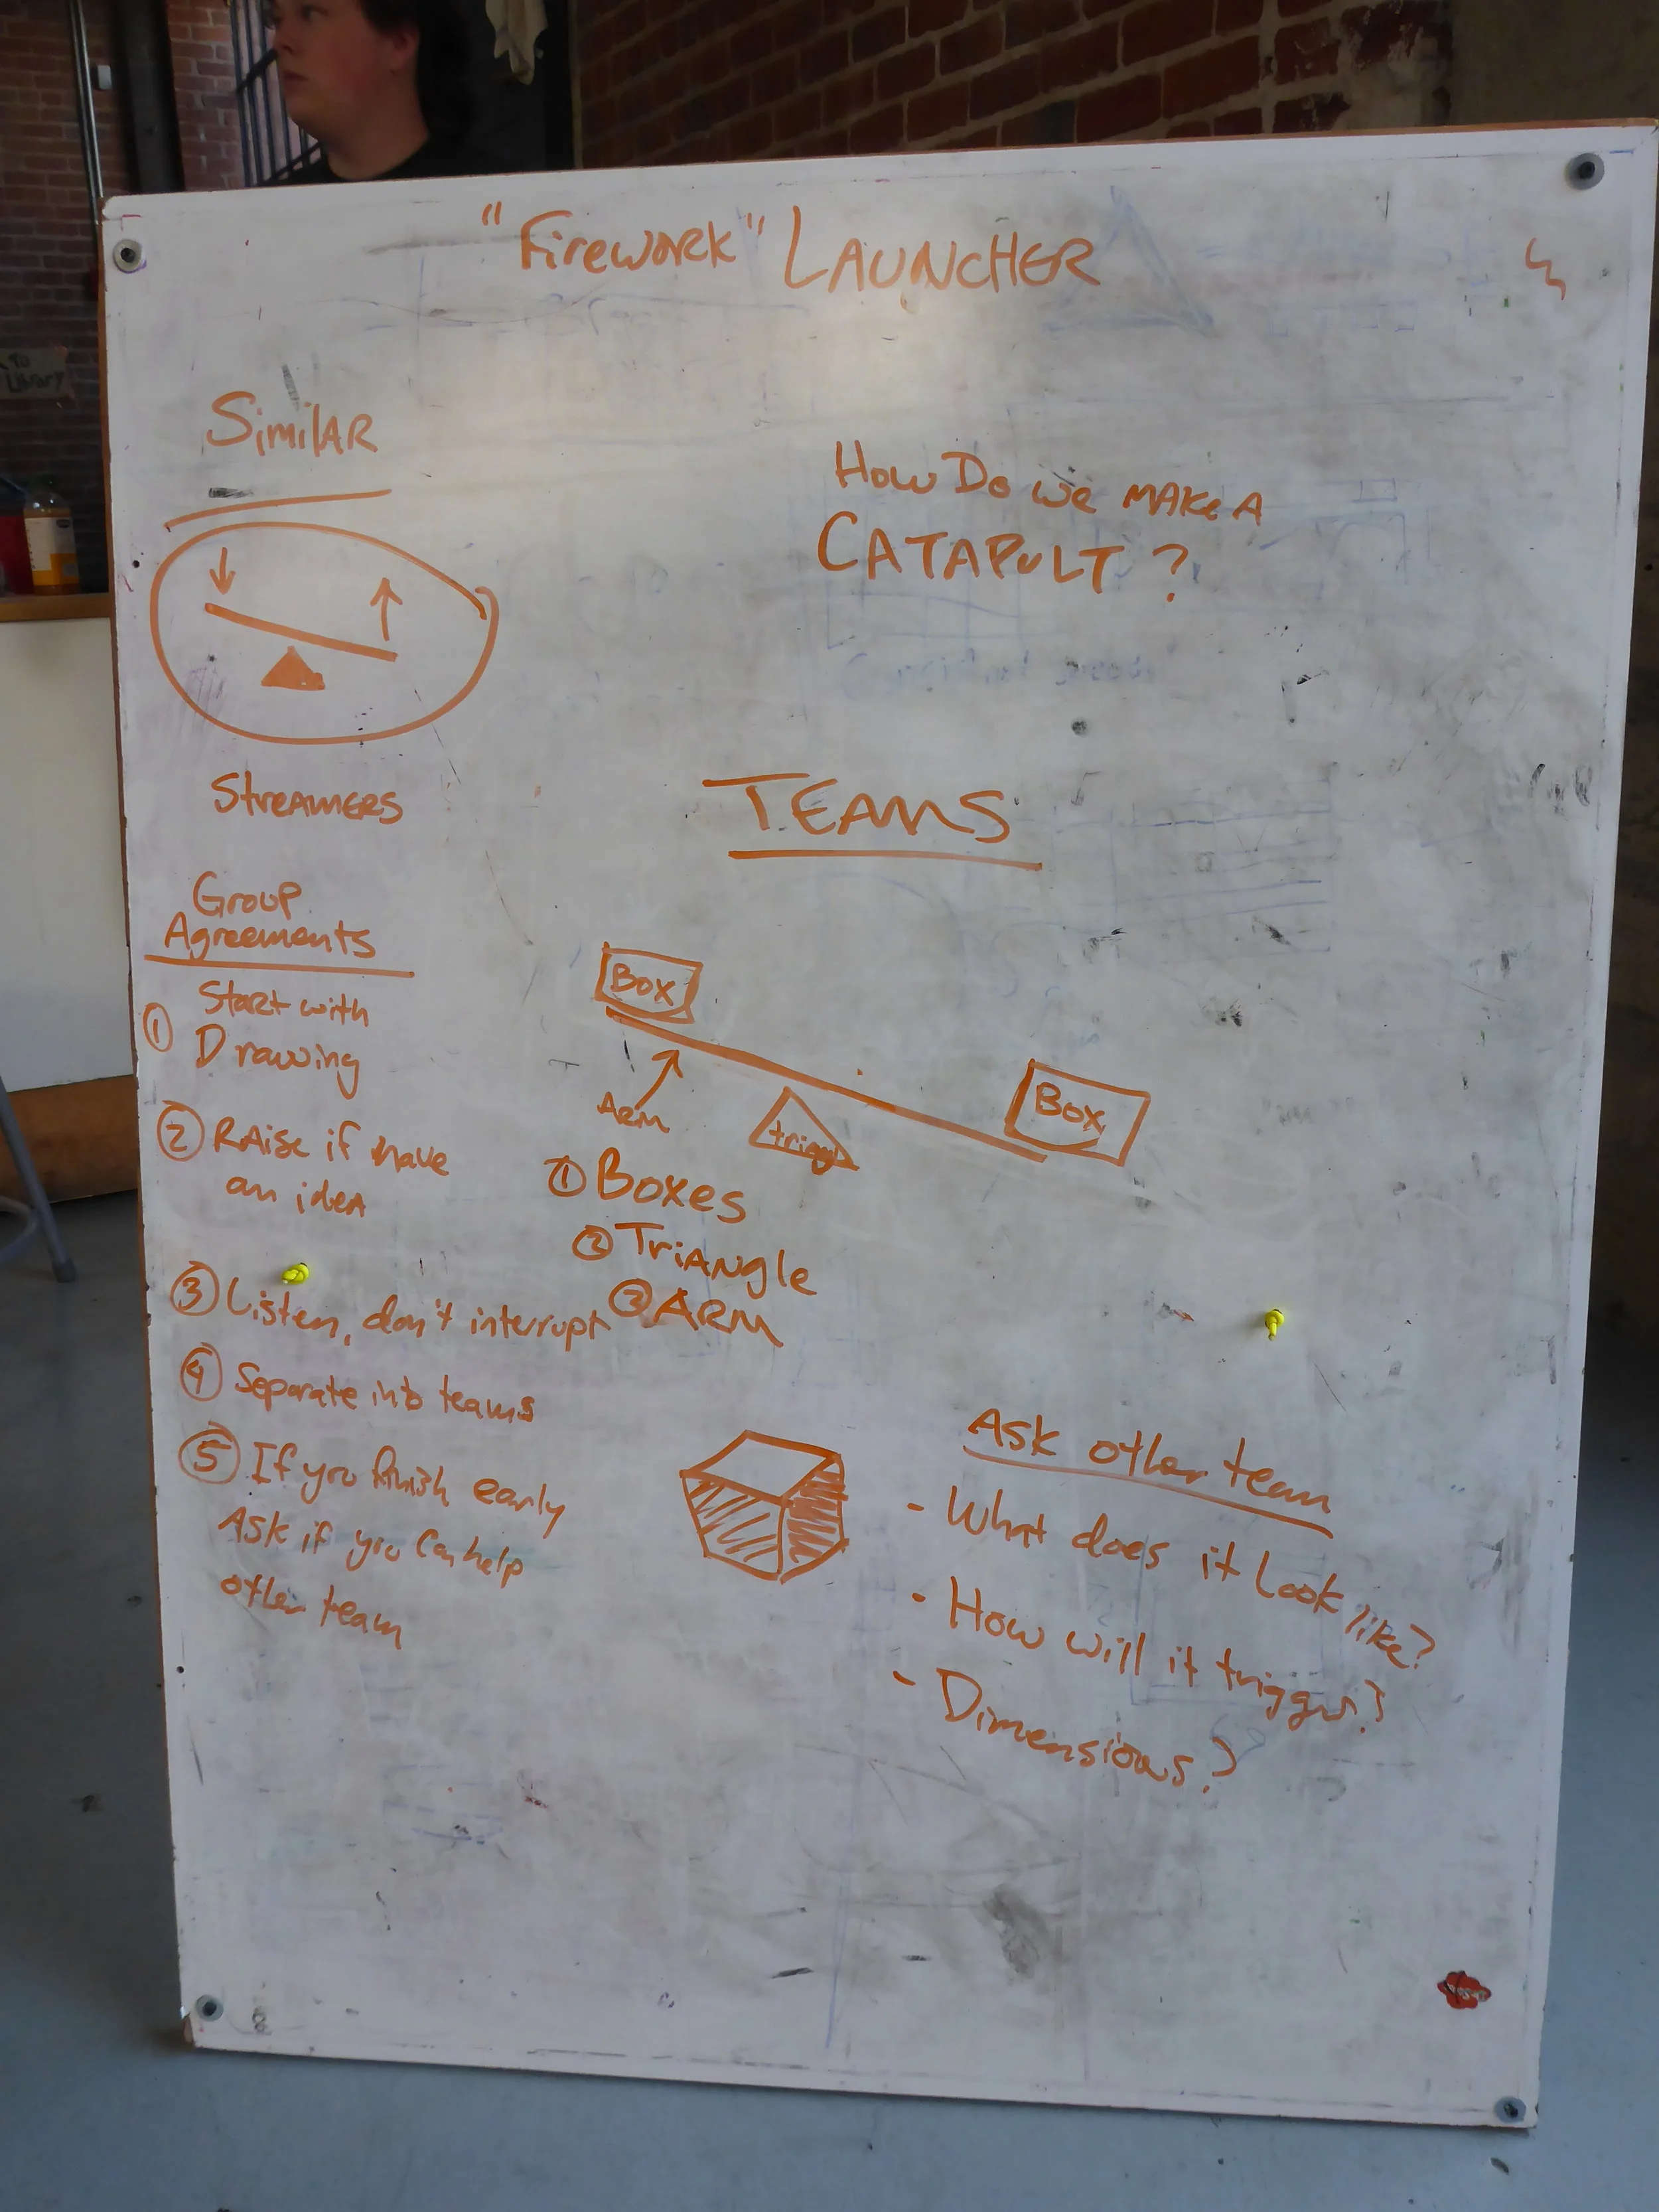 "Firework" LAUNCHER
Similar
How Do we make a
CATAPULT?
Streamers
TEAMS
Group
Agreements
① Start with
Drawing
② Raise if have
an idea
③ Listen, don't interrupt
④ Separate into teams
⑤ If you finish early
Ask if you can help
other team
Box
Box
Arm
① Boxes
② Triangle
③ ARM
Ask other team
- What does it look like?
- How will it trigger?
- Dimensions?
To
Library